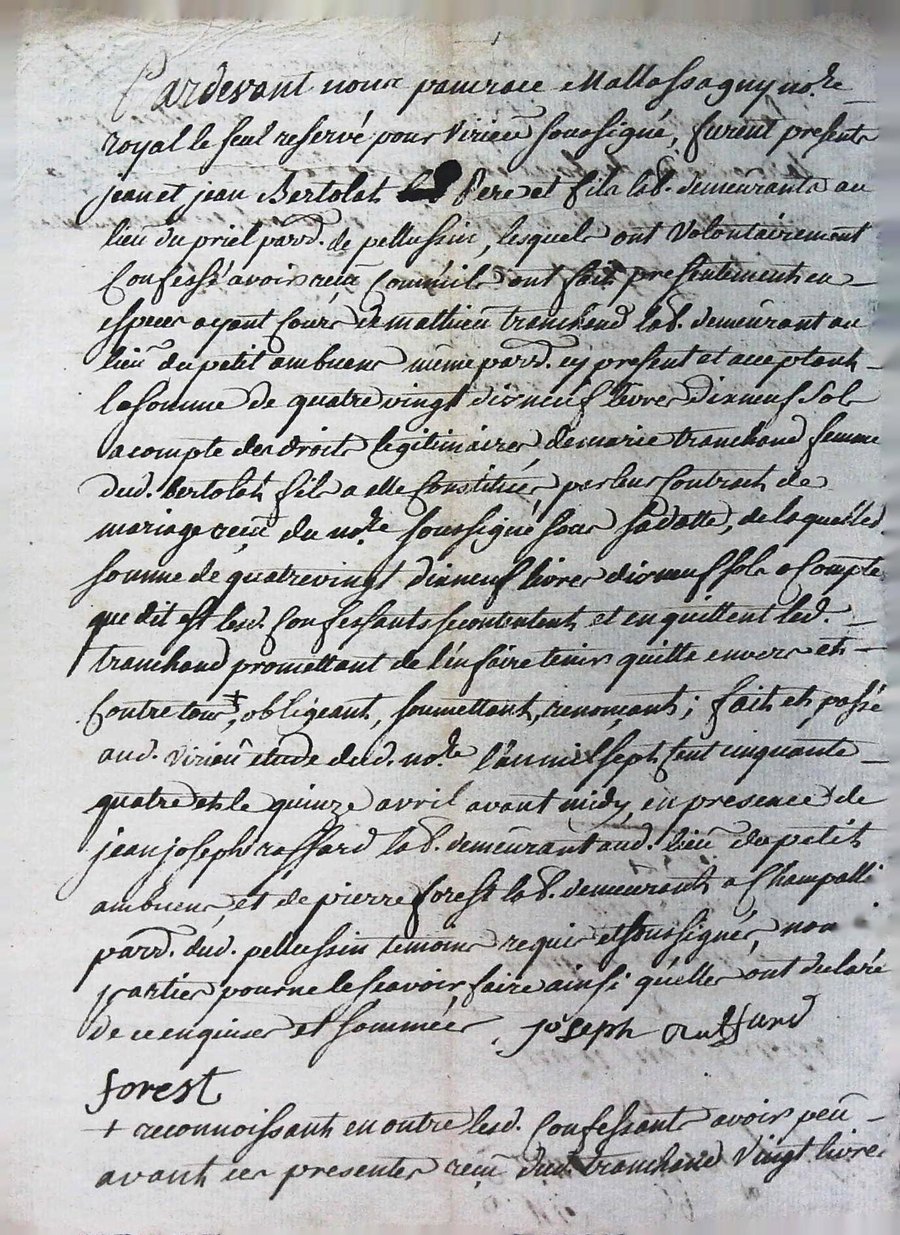 Pardevant nous pancrace Mallassagny no.re
royal le seul reservé pour Virieu soussigné, furent presents
jean et jean Bertolat Pere et fils lab. demeurants au
lieu du priel parr. de pellussin, lesquels ont Volontairement
Confessé avoir reçu Comm'ils ont fait presentement en
especes ayant Cours de mathieu tranchand lab. demeurant au
lieu du petit ambuens même parr. cy present et acceptant
la somme de quatre vingt dix neuf livres dix neuf sols
a compte des droits legitimaires de marie tranchand femme
dud. Bertolat fils a elle Constitués par leur Contract de
mariage reçu du no.re soussigné sous sa datte, de laquelle d.
somme de quatre vingt dix neuf livres dix neuf sols a Compte
que dit est lesd. Confessants se contentent et en quittent led.
tranchand promettant de l'en faire tenir quitte envers et
Contre tous ‡, obligeant, soumettant, renonçant; fait et passé
aud. Virieu etude dud. no.re l'an mil sept Cent cinquante
quatre et le quinze avril avant midy, en presence de
jean joseph raffard lab. demeurant aud. lieu du petit
ambuens, et de pierre forest lab. demeurant a Champalli
parr. dud. pellussin temoins requis et soussignés, non
parties pour ne le scavoir faire ainsi qu'elles ont declaré
de ce enquises et sommées joseph Raffard
forest
+ reconnoissant en outre lesd. Confessants avoir peu
avant ces presentes reçu dud. tranchand Vingt livres